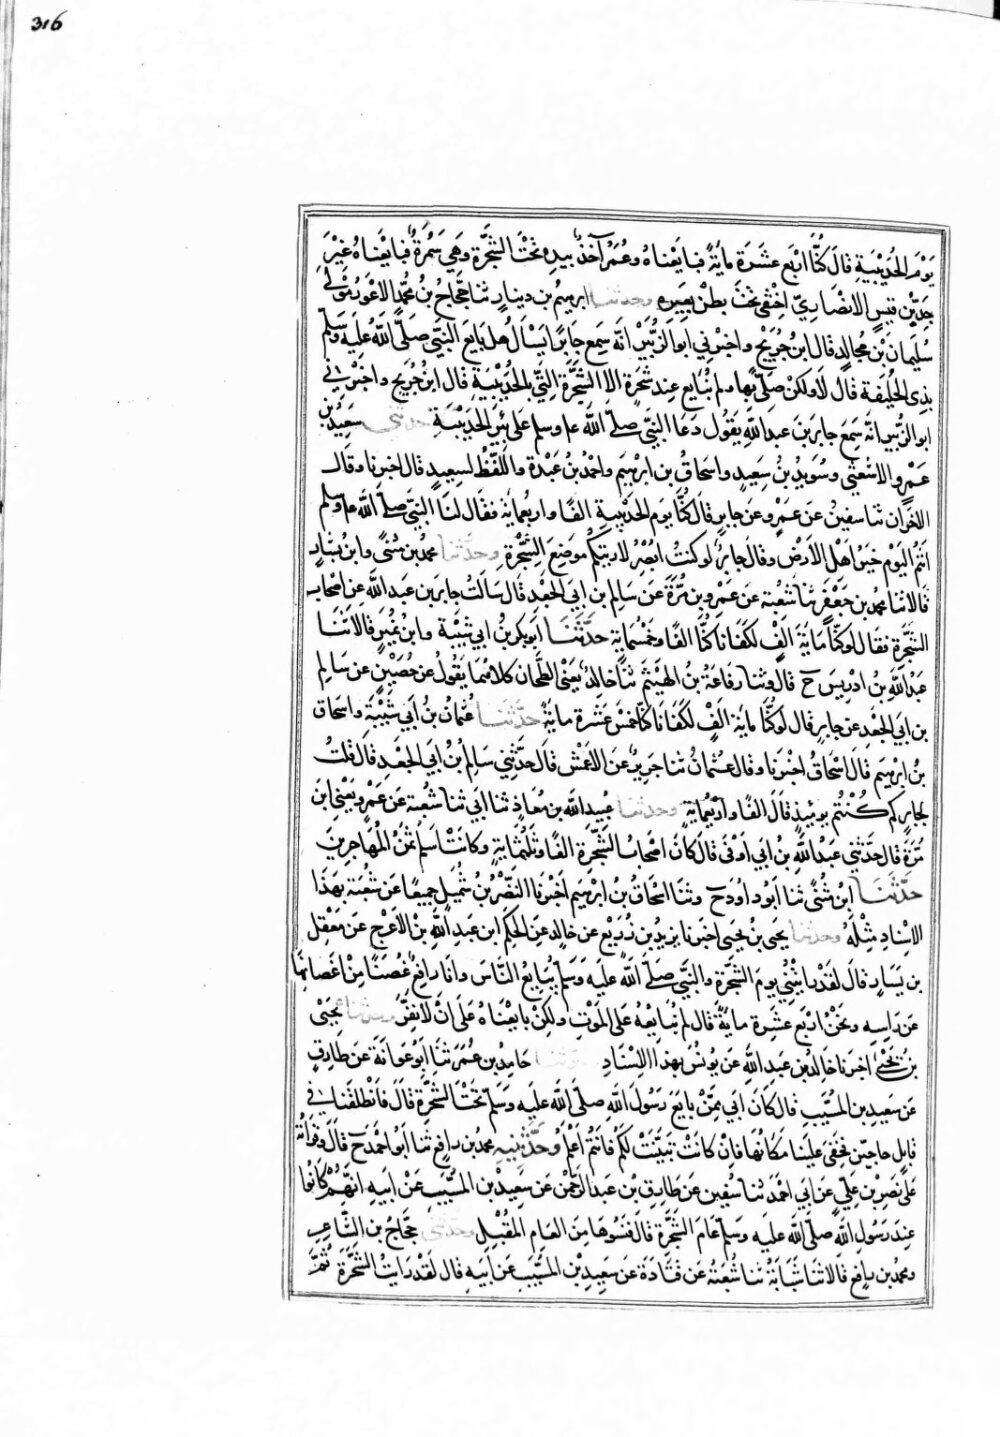 316
يَوْمَ الحُدَيْبِيَةِ قالَ كُنَّا اَرْبَعَ عَشَرَةَ مِايَةً فبايَعْناهُ وعُمَرُ آخذٌ بيدِهِ تَحْتَ الشجَرَةِ وَهْيَ سَمُرَةٌ فبايَعْناهُ غيْرَ
جَدِّ بْنِ قيسٍ الانْصَارِيِّ اخْتَفَى تَحْتَ بَطْنِ بَعِيرِهِ وحدثنا ابرهيمُ بن دينارٍ ثنا حَجَّاجُ بْنُ مُحمَّدٍ الاعْوَرُ مَوْلَى
سُليمانَ بْنِ مُجالِدٍ قالَ ابنُ جُرَيْجٍ واخبرني ابو الزُّبَيْرِ انَّه سَمِعَ جابِرًا يَسْأَلُ هل بايَعَ النبيّ صَلّى اللّهُ عَليْهِ وسَلّم
بِذِي الحُلَيفَةِ قالَ لا ولكنْ صَلّى بها ولم يُبَايِعْ عِندَ شجَرَةٍ الا الشجَرَةَ التي بالحُدَيْبِيَةِ قال ابنُ جُرَيْجٍ واخبَرَني
ابو الزُّبيرِ انَّه سَمِعَ جابرَ بنَ عبدِ اللّهِ يَقُولُ دَعَا النبيّ صلّى اللّه ع م وسلم عَلَى بِئرِ الحُدَيْبِيَةِ حدثني سَعِيدُ بْنُ
عَمْرٍو الاشْعَثيُّ وسُوَيدُ بنُ سَعِيدٍ واسحاقُ بن ابرهيمَ واحمدُ بنُ عَبْدَةَ واللفظُ لسعيدٍ قال اخبرنا وقالَ
الآخَرانِ ثنا سفينُ عَن عَمْرٍو عَن جابرٍ قالَ كُنَّا يومَ الحُدَيْبِيةِ الفًا واربَعُمايَةٍ فقالَ لنَا النبيّ صلّى اللّه ع م وسلم
انتُم اليَوْمَ خيرُ اهْلِ الاَرْضِ وقالَ جابرٌ لو كنتُ ابْصِرُ لارَيْتُكُم مَوضِعَ الشجَرَةِ وحدّثنا محمدُ بن مثنًى وابنُ بشارٍ
قالا ثنا محمدُ بن جَعْفرٍ ثنا شعْبَةُ عَن عَمْرِو بن مُرَّةَ عَن سَالِمِ بن ابي الجعْدِ قالَ سَالْتُ جابرَ بن عبدِ اللّهِ عَنْ اصْحَابِ
الشجَرَةِ فقال لو كنَّا مِايَةَ الفٍ لكفَانا كُنَّا الفًا وخَمْسُمايَةٍ حدّثَنَا ابو بكرِ بنُ ابي شَيْبَةَ وابنُ نُمَيرٍ قالا ثنا
عبدُ اللّهِ بنُ ادريسَ ح قالَ وثنا رفاعَةُ بنُ الهَيْثَمِ ثنا خالدٌ يَعْني الطحَّانَ كلاهُما يَقُولُ عن حُصَيْنٍ عَن سَالِمِ
بن ابي الجَعْدِ عن جابِرٍ قال لو كُنَّا مايَةَ الفٍ لكفَانَا كنَّا خمْسَ عَشرَةَ مايَةً حدَّثنا عُثمانُ بنُ ابي شَيْبَةَ واسحَاقُ
بنُ ابرهيمَ قالَ اسْحَاقُ اخبرنا وقالَ عثمانُ ثنا جريرٌ عَنِ الاَعْمَشِ قَالَ حدَّثني سَالِمُ بنُ ابي الجعْدِ قالَ قلتُ
لجابرٍ كم كُنْتُم يومَئِذٍ قالَ الفًا وارْبَعَمايَةٍ وحدثنا عُبيدُ اللّهِ بن مُعَاذٍ ثنا ابي ثنا شُعْبَةُ عَن عَمْرٍو يَعْني ابنَ
مُرَّةَ قالَ حَدَّثني عبدُ اللّهِ بنُ ابي اَوْفَى قالَ كانَ اَصْحابُ الشجَرَةِ الفًا وثلثمائةٍ وكانتْ اَسْلَمُ ثُمُنَ المُهَاجِرِينَ
حَدَّثنَا ابنُ مُثَنًّى ثنا ابُو داودَ ح وثنَا اسحَاقُ بنُ ابرهيمَ اَخْبرنا النَّضْرُ بنُ شُمَيلٍ جميعًا عَن شُعْبَةَ بهَذَا
الاِسْنادِ مِثْلَهُ وحدثنا يحيى بنُ يَحيَى اخبرنا يزيدُ بن زُرَيْعٍ عَن خالدٍ عَنِ الحَكَمِ ابن عبدِ اللّهِ بنِ الاعْرَجِ عَن مَعْقِلِ
بن يَسَارٍ قالَ لقدْ رايْتُني يومَ الشجَرَةِ والنَّبيُّ صلّى اللّه عليه وسَلّم يُبَايعُ النَّاسَ وانا رافِعٌ غُصْنًا مِنْ اغصَانِها
عَن رَاسِهِ ونَحْنُ اربَع عشرَة مايَةً قال لم نُبَايعْهُ عَلى المَوْتِ ولكِنْ بايعْناهُ عَلَى اَنْ لا نفِرَّ وحدثنا يحيى
بن يَحْيَى اخبرنا خالدُ بن عبدِ اللّهِ عن يُونُسَ بهذا الاِسْنَادِ وحدثنا حامِدُ بن عُمَرَ ثنا ابُو عَوَانَةَ عَن طارِقٍ
عَن سَعِيدِ بن المُسَيَّبِ قالَ كانَ ابي مِمَّن بايَعَ رَسُولَ اللّهِ صلّى اللّه عليه وسلّم تحْتَ الشجَرَةِ قالَ فانْطلَقنا في
قابِلٍ حاجّينَ فخَفِيَ عَليْنا مكَانُها فاِنْ كانَتْ تَبَيَّنَتْ لكُم فانْتُم اَعْلَمُ وحَدَّثنِيهِ محمدُ بن رافِعٍ ثنا ابُو احْمدَ ح قالَ وقراتُهُ
عَلَى نَصْرِ بن عَليٍّ عَن ابي احْمَدَ ثنا سُفينُ عَن طارقِ بن عبدِ الرَّحمنِ عَن سَعِيدِ بن المُسَيَّبِ عَنْ ابيهِ انَّهُم كانُوا
عِندَ رَسُولِ اللّهِ صلّى اللّه عليه وسَلّم عَامَ الشجَرَةِ قالَ فنَسُوهَا مِنَ العَامِ المُقْبِلِ وحدّثني حجّاجُ بن الشاعِرِ
ومحمدُ بن رافِعٍ قالا ثنا شَبَابَةُ ثنا شُعْبَةُ عَن قتَادَةَ عَن سَعِيدِ بن المُسَيَّبِ عَن ابيهِ قال لقَدْ رَايْتُ الشجَرَةَ ثُمَّ